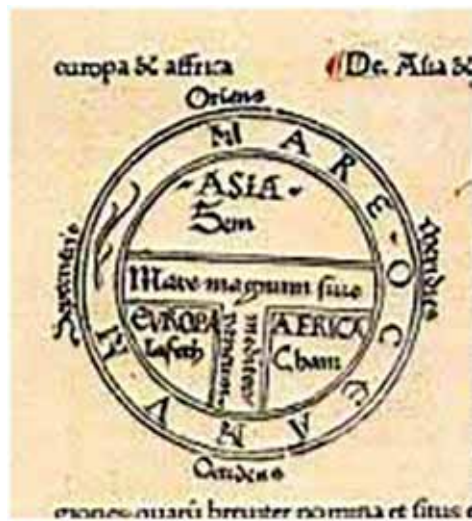 europa & affrica
De. Asia &
Oriens
MARE OCEANUM
ASIA
Sem
Septentrio
Meridies
Mare magnum siue
mediter
raneum
EVROPA
Iafeth
AFRICA
Cham
Occidens
giones quarū breuiter nomina et situs